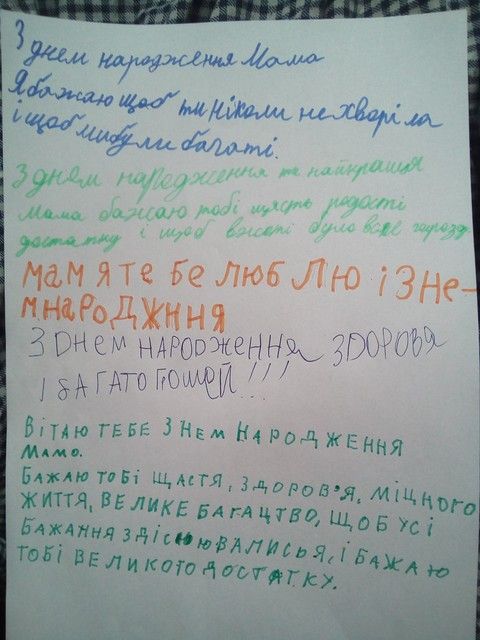 З днем народження Мама
Я бажаю щоб ти ніколи не хворіла
і щоб ми були багаті.
З днем народження ти найкраща
мама бажаю тобі щясть радості
достатку і щоб в житі було все гаразд
мам я те бе люб лю і з не-
м народжння
З Днем народження здоровя
і багато грошей!!!
Вітаю тебе з нем народження
мамо.
Бажаю тобі щастя, здоров'я, міцного
життя, велике багацтво, щоб усі
бажання здіснювалисья, і бажаю
тобі великого достатку.